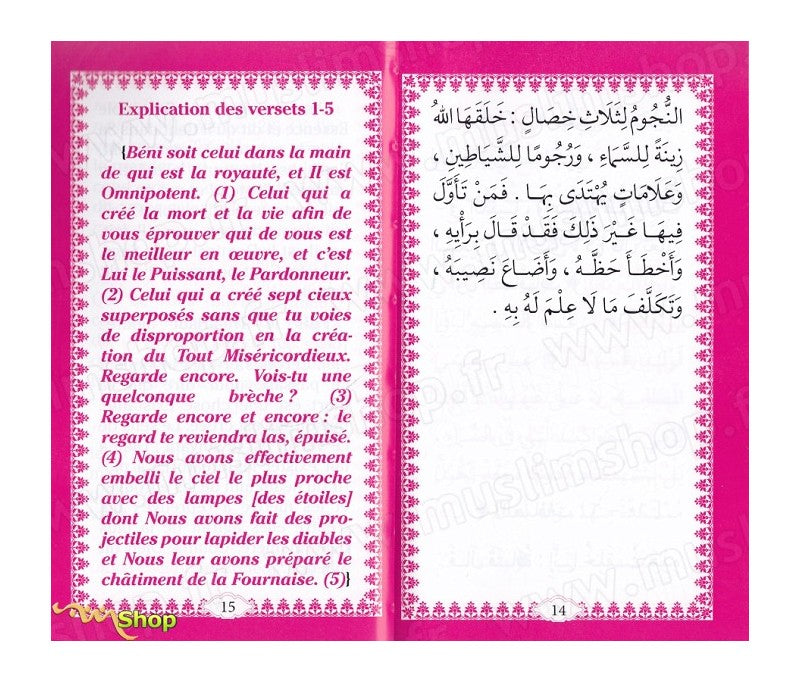 Explication des versets 1-5
{Béni soit celui dans la main
de qui est la royauté, et Il est
Omnipotent. (1) Celui qui a
créé la mort et la vie afin de
vous éprouver qui de vous est
le meilleur en œuvre, et c’est
Lui le Puissant, le Pardonneur.
(2) Celui qui a créé sept cieux
superposés sans que tu voies
de disproportion en la créa-
tion du Tout Miséricordieux.
Regarde encore. Vois-tu une
quelconque brèche ? (3)
Regarde encore et encore : le
regard te reviendra las, épuisé.
(4) Nous avons effectivement
embelli le ciel le plus proche
avec des lampes [des étoiles]
dont Nous avons fait des pro-
jectiles pour lapider les diables
et Nous leur avons préparé le
châtiment de la Fournaise. (5)}
15
النُّجُومُ لِثَلَاثِ خِصَالٍ : خَلَقَهَا اللهُ
زِينَةً لِلسَّمَاءِ ، وَرُجُومًا لِلشَّيَاطِينِ ،
وَعَلَامَاتٍ يُهْتَدَى بِهَا . فَمَنْ تَأَوَّلَ
فِيهَا غَيْرَ ذَلِكَ فَقَدْ قَالَ بِرَأْيِهِ ،
وَأَخْطَأَ حَظَّهُ ، وَأَضَاعَ نَصِيبَهُ ،
وَتَكَلَّفَ مَا لَا عِلْمَ لَهُ بِهِ .
14
Shop
www.muslimshop.fr